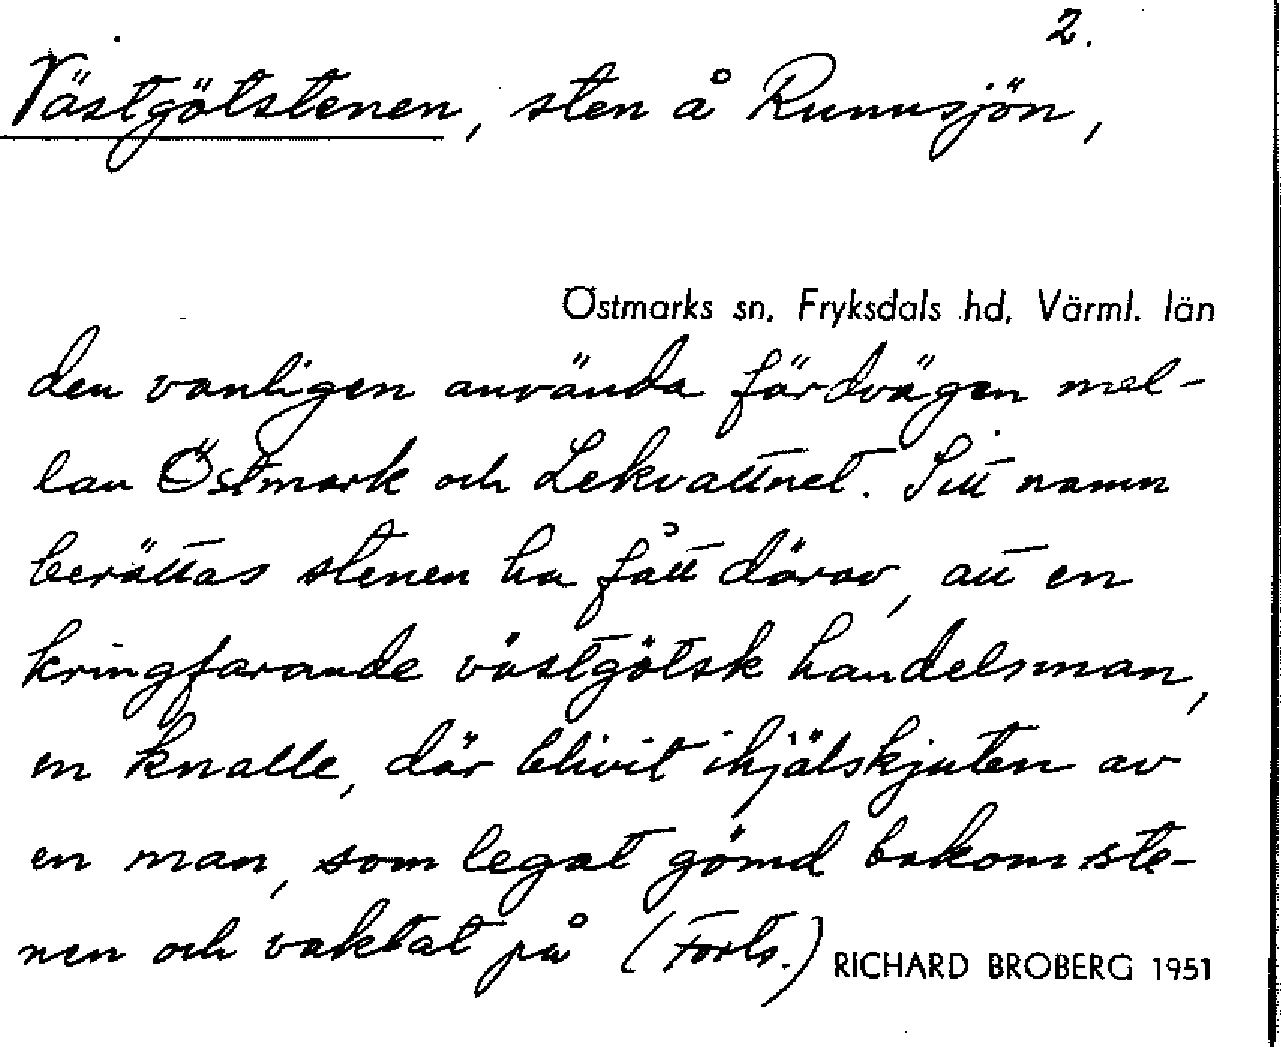 2.
Västgötstenen, sten å Runnsjön,
Östmarks sn, Fryksdals hd, Värml. län
den vanligen använda färdvägen mel-
lan Östmark och Lekvattnet. Sitt namn
berättas stenen ha fått därav, att en
kringfarande västgötsk handelsman,
en knalle, där blivit ihjälskjuten av
en man, som legat gömd bakom ste-
nen och vaktat på (Forts.)
RICHARD BROBERG 1951